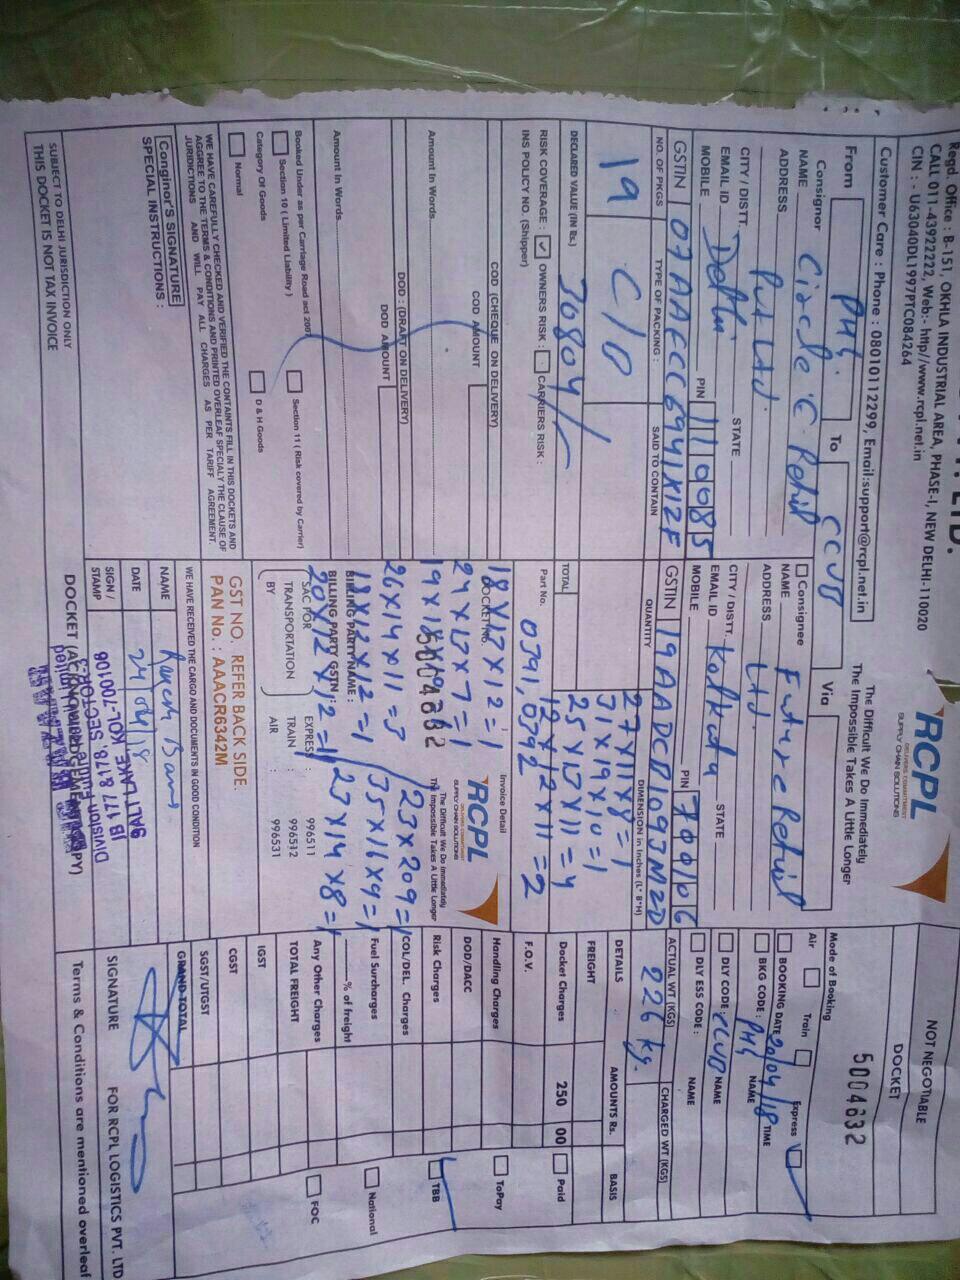 Regd. Office : B-151, OKHLA INDUSTRIAL AREA, PHASE-I, NEW DELHI-110020
CALL 011-43922222, Web:- http//www.rcpl.net.in
CIN : - U63040DL1997PTC084264
Customer Care : Phone : 08010112299, Email:support@rcpl.net.in
RCPL
DELIVERS COMMITMENT
SUPPLY CHAIN SOLUTIONS
The Difficult We Do Immediately
The Impossible Takes A Little Longer
NOT NEGOTIABLE
DOCKET
5004632
From
To
CCUB
Via
Mode of Booking
Air
Train
Express
Consignor
NAME
Circle C Retail
ADDRESS
Pvt Ltd.
CITY / DISTT.
STATE
EMAIL ID
Delhi
MOBILE
PIN
110085
GSTIN
07AAECC6941K1ZF
Consignee
NAME
Future Retail
ADDRESS
Ltd
CITY / DISTT.
STATE
EMAIL ID
Kolkata
MOBILE
PIN
700106
GSTIN
19AADCD1093M2D
BOOKING DATE
20/04/18
TIME
BKG CODE :
NAME
DLY CODE :
NAME
DLY ESS CODE :
NAME
NO. OF PKGS
TYPE OF PACKING :
SAID TO CONTAIN
QUANTITY
DIMENSION in Inches (L* B*H)
ACTUAL WT (KGS)
CHARGED WT (KGS)
19
C/O
226 kg.
27X11X8=1
31X19X10=1
25X13X11=4
12X12X11=2
TOTAL
Part No.
0391,0392
DECLARED VALUE (IN Rs.)
30804/-
RISK COVERAGE :
OWNERS RISK :
CARRIERS RISK :
INS POLICY NO. (Shipper)
COD (CHEQUE ON DELIVERY)
COD AMOUNT
Amount In Words
DOD : (DRAFT ON DELIVERY)
DOD AMOUNT
Amount In Words
Booked Under as per Carriage Road act 2007
Section 10 ( Limited Liability )
Section 11 ( Risk covered by Carrier)
Category Of Goods
Normal
D & H Goods
WE HAVE CAREFULLY CHECKED AND VERIFIED THE CONTAINTS FILL IN THIS DOCKETS AND
AGGREE TO THE TERMS & CONDITIONS AND PRINTED OVERLEAF SPECIALY THE CLAUSE OF
JURIDICTIONS AND WILL PAY ALL CHARGES AS PER TARIFF AGREEMENT.
Conginor'S SIGNATURE
SPECIAL INSTRUCTIONS :
SUBJECT TO DELHI JURISDICTION ONLY
THIS DOCKET IS NOT TAX INVOICE
Invoice Detail
DOCKET No.
5004632
RCPL
DELIVERS COMMITMENT
SUPPLY CHAIN SOLUTIONS
The Difficult We Do Immediately
The Impossible Takes A Little Longer
18X13X12=1
24X13X7=1
26X14X11=3
18X12X12=1
20X12X12=1
23X20
35X16X9=1
23X14X8=1
BILLING PARTY NAME :
BILLING PARTY GSTN :
SAC FOR
TRANSPORTATION
BY
EXPRESS : 996511
TRAIN : 996512
AIR : 996531
GST NO. REFER BACK SIDE.
PAN No. : AAACR6342M
WE HAVE RECEIVED THE CARGO AND DOCUMENTS IN GOOD CONDITION
NAME
DATE
24/04/18
SIGN /
STAMP
IB 177 & 178, SECTOR-3
SALT LAKE KOL-700106
DETAILS
AMOUNTS Rs.
BASIS
FREIGHT
Docket Charges
250 00
Paid
F.O.V.
Handling Charges
ToPay
DOD/DACC
Risk Charges
TBB
COL/DEL. Charges
Fuel Surcharges
% of freight
National
Any Other Charges
TOTAL FREIGHT
FOC
IGST
CGST
SGST/UTGST
GRAND TOTAL
SIGNATURE FOR RCPL LOGISTICS PVT. LTD
Terms & Conditions are mentioned overleaf